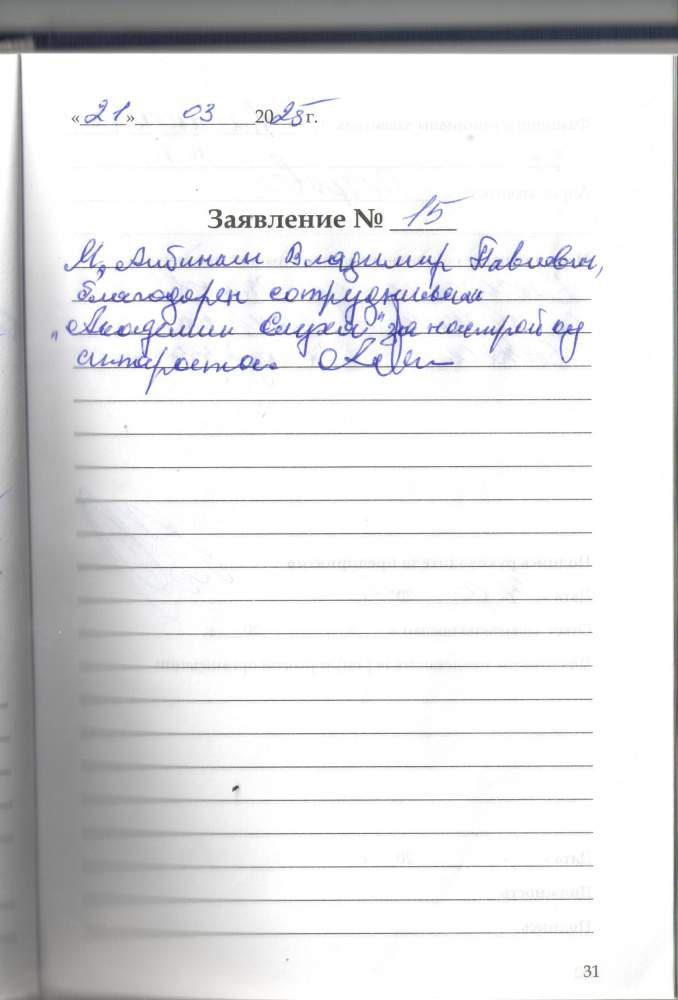 «21» 03 2025 г.
Заявление № 15
Владимир Павлович,
благодарен сотрудникам
"Академии Слуха" за настройку
31